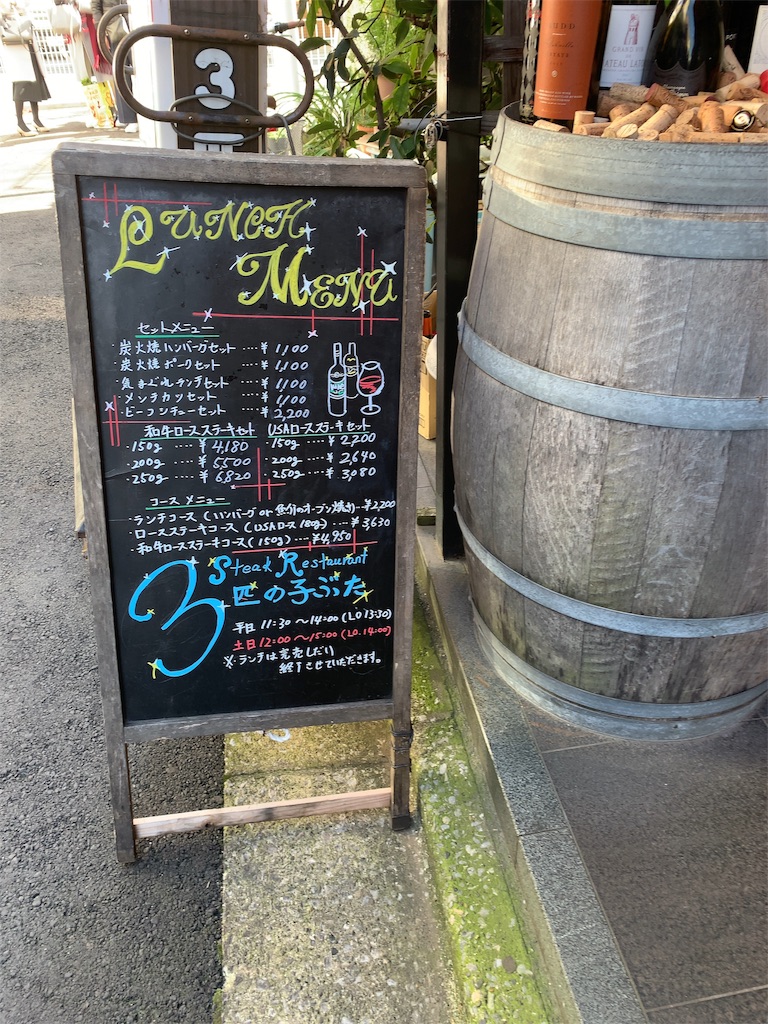 3
LUNCH
MENU
セットメニュー
・炭火焼ハンバーグセット ‥‥ ¥ 1,100
・炭火焼ポークセット ‥‥ ¥ 1,100
・魚まぐれランチセット ¥ 1,100
・メンチカツセット ‥‥ ¥ 1,100
・ビーフシチューセット ¥ 2,200
和牛ロースステーキセット
・150g ‥‥ ¥ 4,180
・200g ‥‥ ¥ 5,500
・250g ‥‥ ¥ 6,820
USAロースステーキセット
・150g ‥‥ ¥ 2,200
・200g ‥‥ ¥ 2,640
・250g ‥‥ ¥ 3,080
コースメニュー
・ランチコース (ハンバーグ or 魚介のオーブン焼き)‥¥2,200
・ロースステーキコース (USAロース 180g) ‥‥ ¥ 3,630
・和牛ロースステーキコース (150g) ‥‥ ¥4,950
Steak Restaurant
3匹の子ぶた
平日 11:30 〜 14:00 (LO 13:30)
土日 12:00 〜 15:00 (LO. 14:00)
※・ランチは完売しだい
終了させていただきます。
GRAND VIN